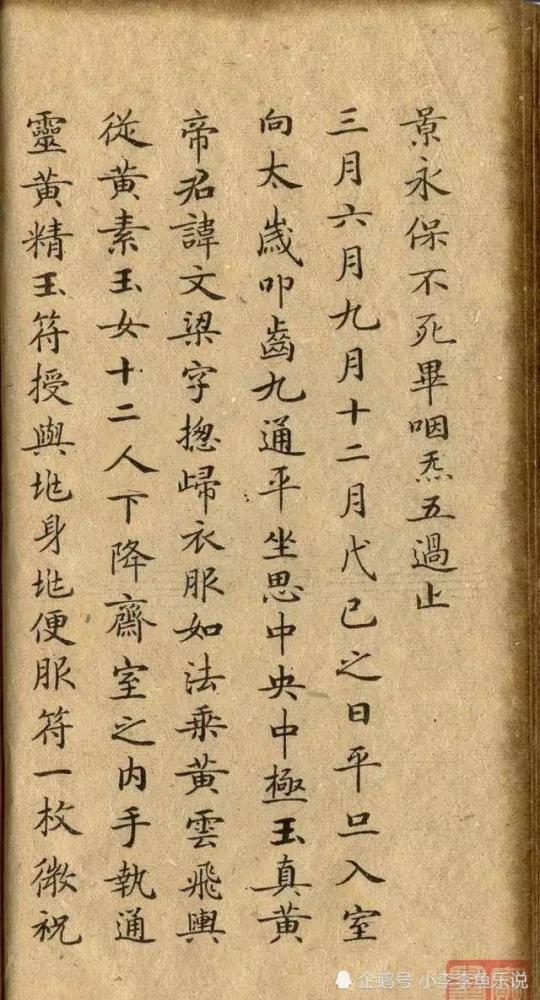 景永保不死畢咽炁五過止
三月六月九月十二月戊己之日平旦入室
向太歲叩齒九通平坐思中央中極玉真黃
帝君諱文梁字揔歸衣服如法乘黃雲飛輿
從黃素玉女十二人下降齋室之内手執通
靈黃精玉符授與兆身兆便服符一枚微祝
企鹅号 小李李鱼乐说